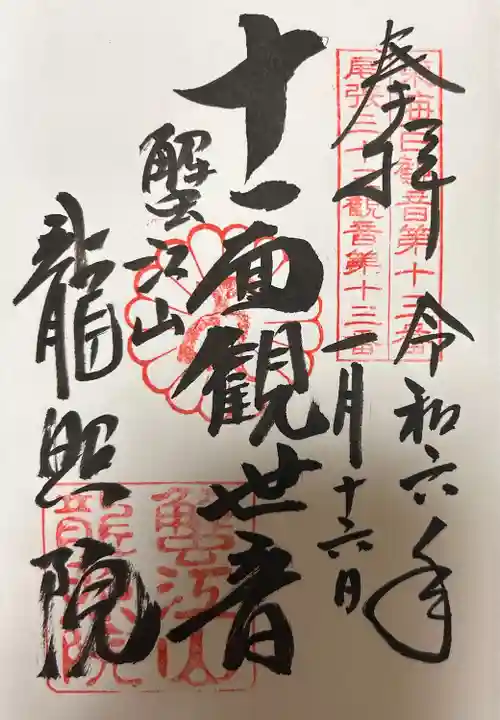 奉拝
令和六年
一月十六日
東海白観音第十三番
尾張三十三観音第十三番
十一面観世音
蟹江山
龍照院
蟹江山
龍照院